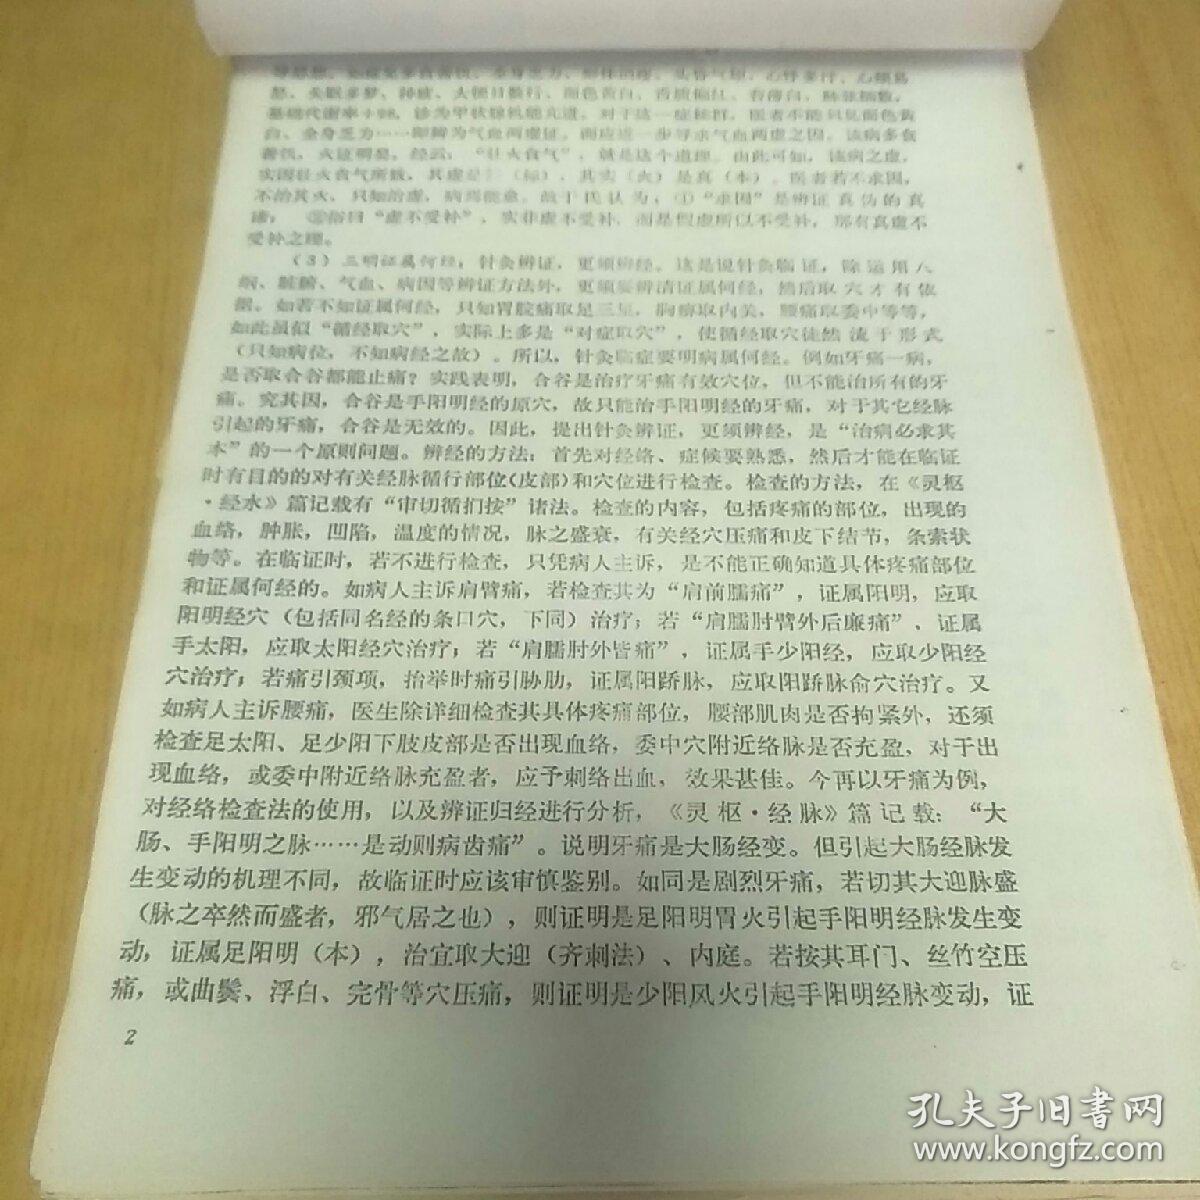 怒、失眠多梦、神疲、大便日数行、面色黄白、舌质偏红、苔薄白、脉弦细数，
白、全身乏力……即辨为气血两虚证。而应进一步寻求气血两虚之因。该病多食
善饥，火证明矣，经云：“壮火食气”，就是这个道理。由此可知，该病之虚，
实因壮火食气所致，其虚是（标），其实（火）是真（本）。医者若不求因，
不治其火，只知治虚，病焉能愈。故于氏认为：①“求因”是辨证真伪的真
谛；②俗曰“虚不受补”，实非虚不受补，而是假虚所以不受补，那有真虚不
受补之理。
（3）三明证属何经：针灸辨证，更须辨经。这是说针灸临证，除运用八
纲、脏腑、气血、病因等辨证方法外，更须要辨清证属何经，然后取穴才有依
据。如若不知证属何经，只知胃脘痛取足三里，胸痹取内关，腰痛取委中等等，
如此虽似“循经取穴”，实际上多是“对症取穴”，使循经取穴徒然流于形式
（只知病位，不知病经之故）。所以，针灸临症要明病属何经。例如牙痛一病，
是否取合谷都能止痛？实践表明，合谷是治疗牙痛有效穴位，但不能治所有的牙
痛。究其因，合谷是手阳明经的原穴，故只能治手阳明经的牙痛，对于其它经脉
引起的牙痛，合谷是无效的。因此，提出针灸辨证，更须辨经，是“治病必求其
本”的一个原则问题。辨经的方法：首先对经络、症候要熟悉，然后才能在临证
时有目的的对有关经脉循行部位(皮部)和穴位进行检查。检查的方法，在《灵枢
·经水》篇记载有“审切循扪按”诸法。检查的内容，包括疼痛的部位，出现的
血络，肿胀，凹陷，温度的情况，脉之盛衰，有关经穴压痛和皮下结节，条索状
物等。在临证时，若不进行检查，只凭病人主诉，是不能正确知道具体疼痛部位
和证属何经的。如病人主诉肩臂痛，若检查其为“肩前臑痛”，证属阳明，应取
阳明经穴（包括同名经的条口穴，下同）治疗；若“肩臑肘臂外后廉痛”、证属
手太阳，应取太阳经穴治疗；若“肩臑肘外皆痛”，证属手少阳经，应取少阳经
穴治疗；若痛引颈项，抬举时痛引胁肋，证属阳跻脉，应取阳跻脉俞穴治疗。又
如病人主诉腰痛，医生除详细检查其具体疼痛部位，腰部肌肉是否拘紧外，还须
检查足太阳、足少阳下肢皮部是否出现血络，委中穴附近络脉是否充盈，对于出
现血络，或委中附近络脉充盈者，应予刺络出血，效果甚佳。今再以牙痛为例，
对经络检查法的使用，以及辨证归经进行分析，《灵枢·经脉》篇记载：“大
肠、手阳明之脉……是动则病齿痛”。说明牙痛是大肠经变。但引起大肠经脉发
生变动的机理不同，故临证时应该审慎鉴别。如同是剧烈牙痛，若切其大迎脉盛
（脉之卒然而盛者，邪气居之也），则证明是足阳明胃火引起手阳明经脉发生变
动，证属足阳明（本），治宜取大迎（齐刺法）、内庭。若按其耳门、丝竹空压
痛，或曲鬓、浮白、完骨等穴压痛，则证明是少阳风火引起手阳明经脉变动，证
2
孔夫子旧书网
www.kongfz.com